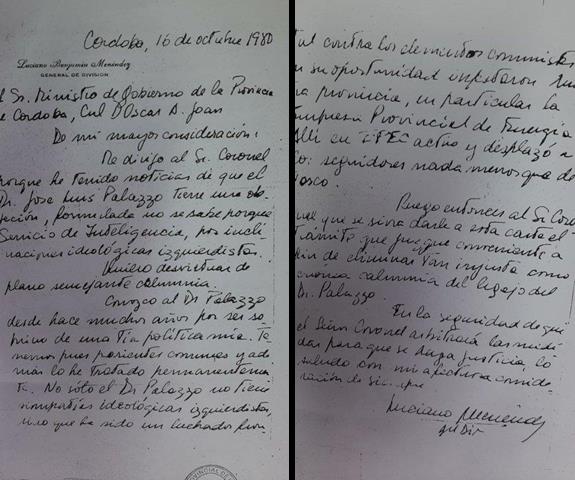 Córdoba, 16 de octubre 1980
Luciano Benjamín Menéndez
GENERAL DE DIVISION
l Sr. Ministro de Gobierno de la Provincia
e Córdoba, Cnl D Oscar A. Joan
De mi mayor consideración:
Me dirijo al Sr. Coronel
porque he tenido noticias de que el
Dr. Jose Luis Palazzo tiene una ob-
jeción, formulada no se sabe porque
Servicio de Inteligencia, por incli-
naciones ideológicas izquierdistas.
Quiero desvirtuar de
plano semejante calumnia.
Conozco al Dr Palazzo
desde hace muchos años por ser so-
brino de una tía política mía. Te-
nemos pues parientes comunes y ade
más lo he tratado permanentemen
te. No sólo el Dr Palazzo no tiene
simpatías ideológicas izquierdistas,
sino que ha sido un luchador
tal contra los elementos comunistas
en su oportunidad
a provincia, en particular la
mpresa Provincial de Energía
Allí en EPEC actuó y desplazó a
os seguidores nada menos que de
osco.
Ruego entonces al Sr Coro
nel que se sirva darle a esta carta el
trámite que juzgue conveniente a
fin de eliminar tan injusta como
calumnia del legajo del
Dr. Palazzo.
En la seguridad de que
el Señor Coronel arbitrará las medi
das para que se haga justicia, lo
saludo con mi afectuosa conside
ración de siempre
Luciano Menéndez
Gral Div
PROVINCIAL DE